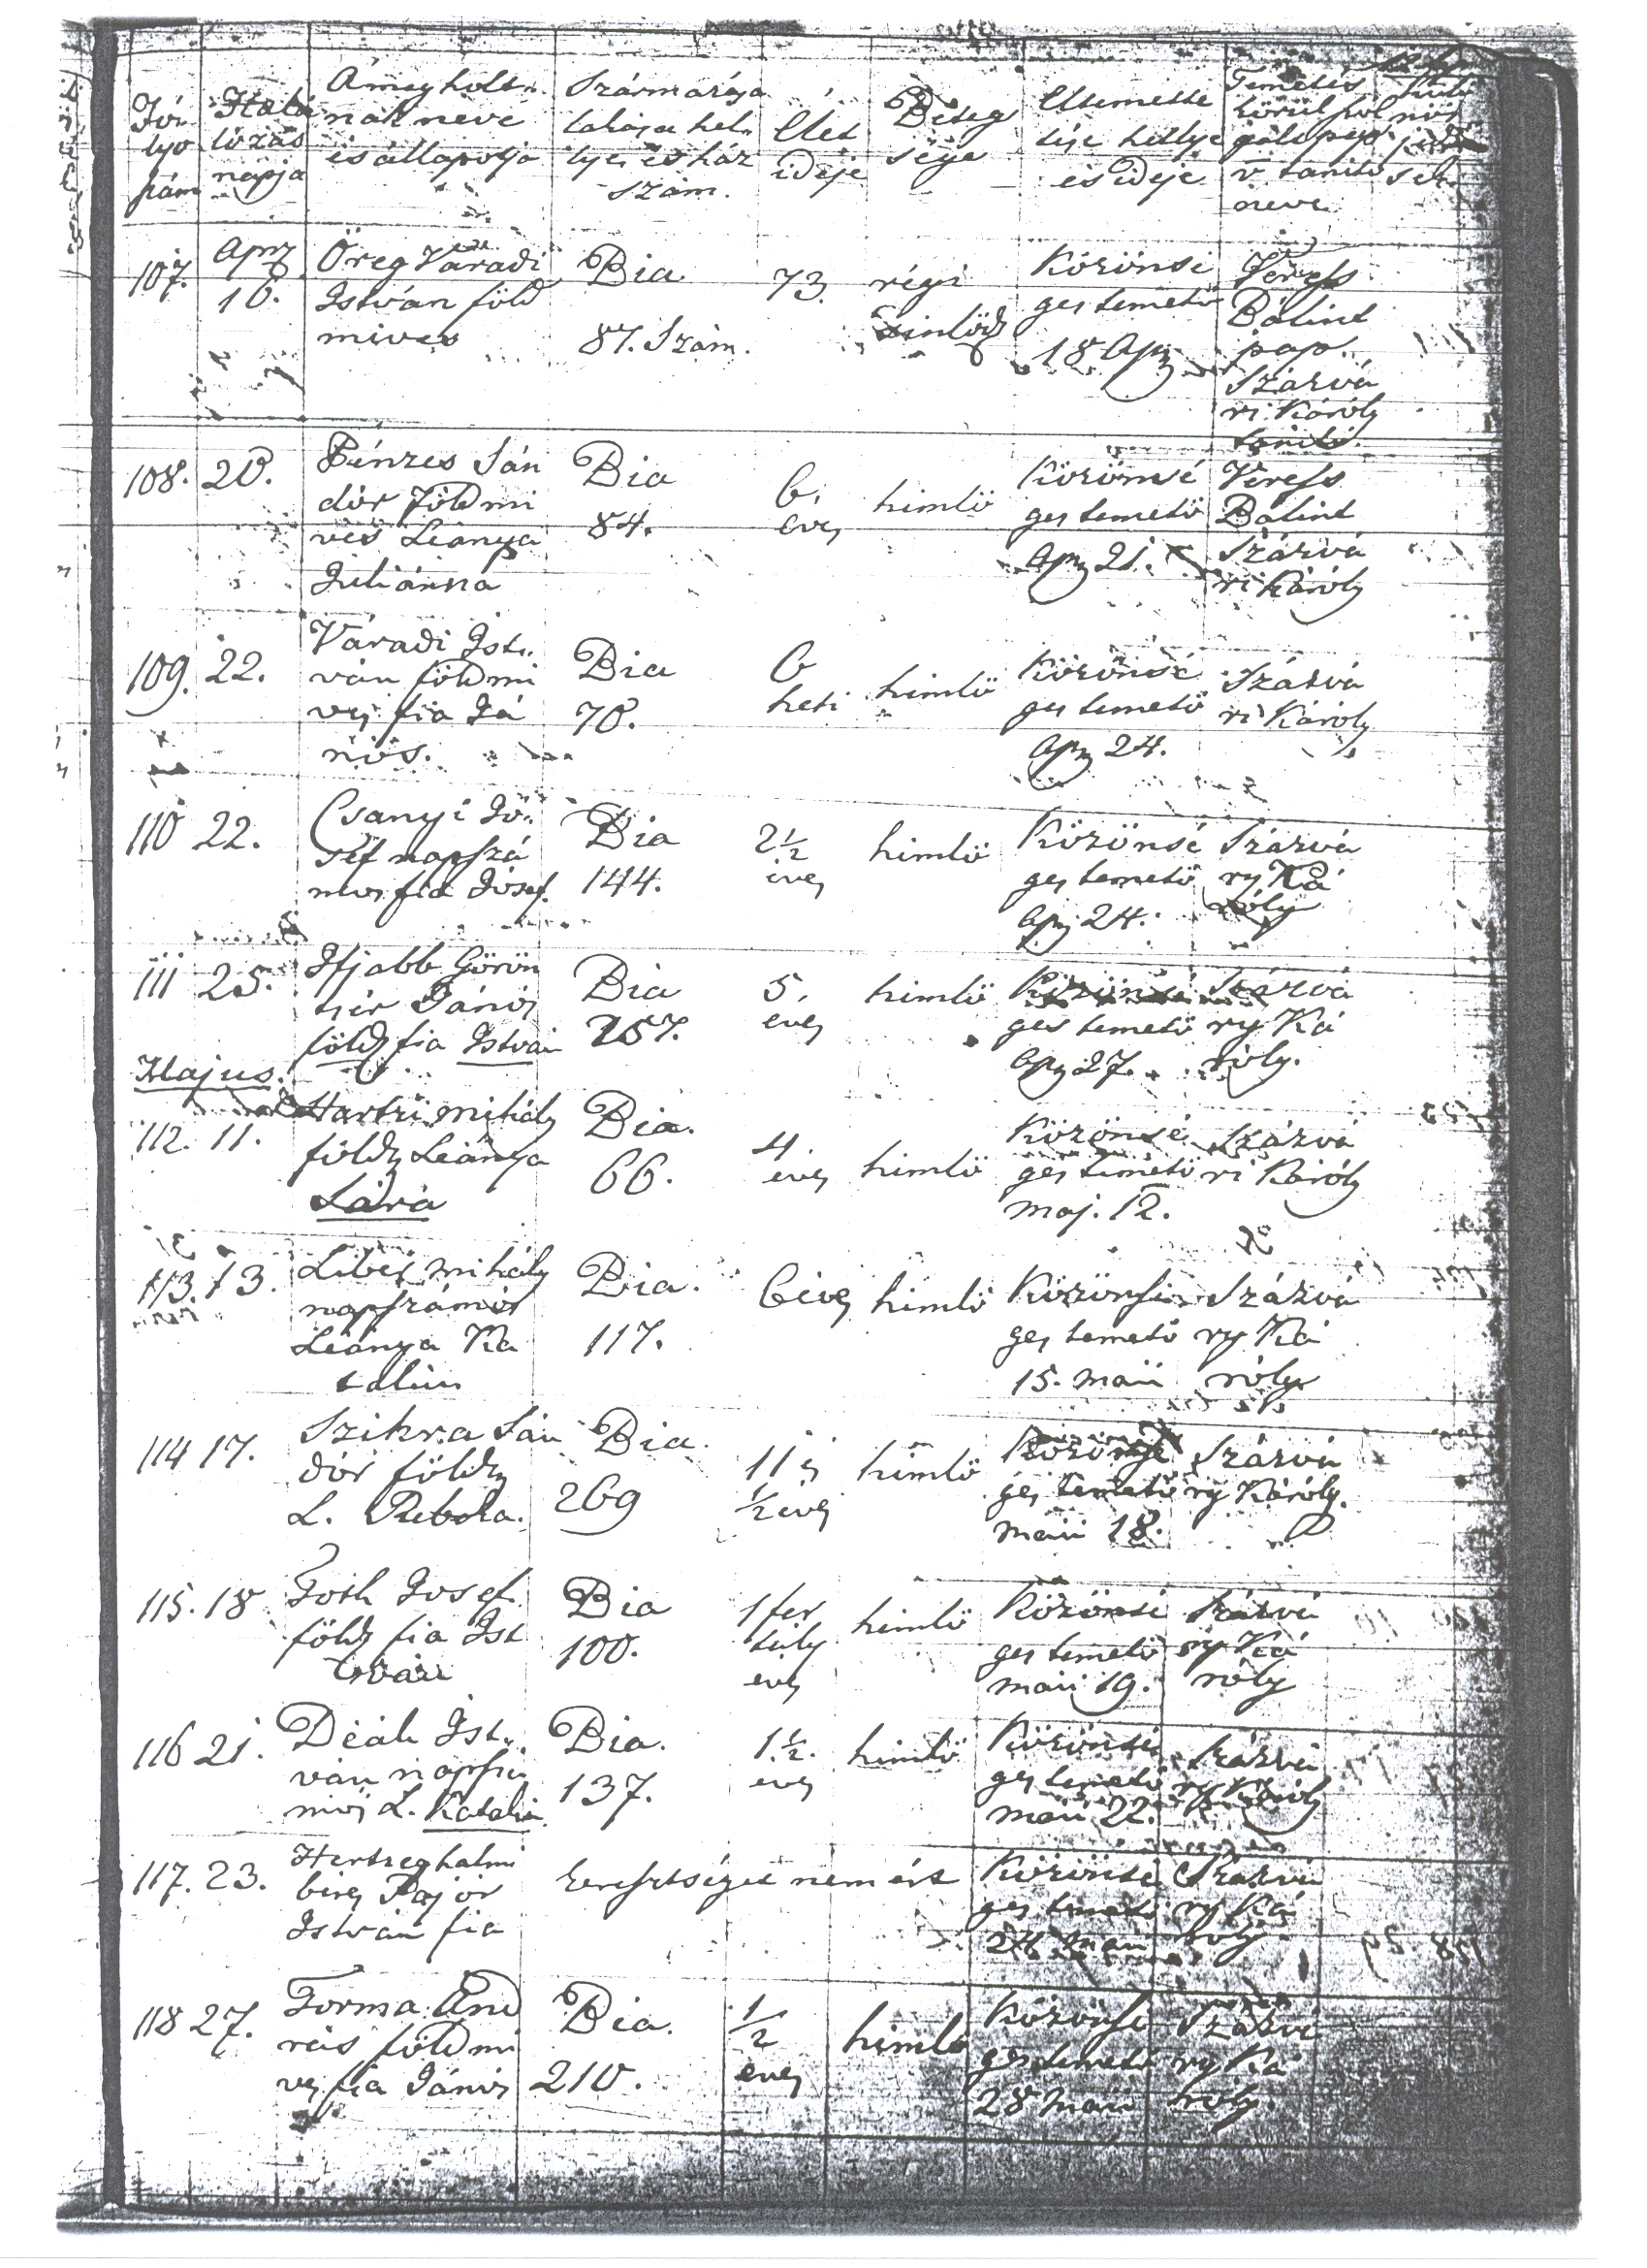 Fó
lyo
szám
Halá
lozás
napja
A megholt
nak neve
és állapotja
Származása
lakása hel
lye, és ház
szám.
Élet
ideje
Beteg
sége
Eltemette
tése hellye
és ideje
Temetés
körül szol
gáló pap
v tanító
neve
107.
Apr
16.
Öreg Váradi
István föld
mives
Bia
87. Szám.
73.
régi
Közönsé
ges temető
18 Apr
Veress
Bálint
pap.
Szárvá
ri Károly
tanító.
108.
20.
Pénzes Sán
dór földmi
ves Leánya
Juliánna
Bia
84.
6.
éves
himlö
Közönsé
ges temető
Apr 21.
Veress
Bálint
Szárvá
ri Károly
109.
22.
Váradi Ist
ván földmi
ves fia Já
nós.
Bia
70.
6
heti
himlö
Közönsé
ges temető
Apr 24.
Szárvá
ri Károly
110
22.
Csanyi Jó
sef napszá
mos fia Jósef.
Bia
144.
2½
éves
himlö
Közönsé
ges temető
Apr 24.
Szárvá
ry Ká
róly
111
25.
Ifjabb Görön
tsér János
földm fia István
Bia
257.
5.
éves
himlö
Közönsé
ges temető
Apr 27.
Szárvá
ry Ká
róly.
Majus.
112.
11.
Hartzi Mihály
földm Leánya
Sára
Bia.
66.
4
éves
himlö
Közönsé
ges temető
maj. 12.
Szárvá
ri Károly
113.
13.
Mihály
napszámos
Leánya Ka
talin
Bia.
117.
6 éves
himlö
Közönsé
ges temető
15. maii
Szárvá
ry Ká
róly
114
17.
Szikra Sán
dór földm
L. Rebeka.
Bia.
269
11 ½ éves
himlö
Közönsé
ges temető
maii 18.
Szárvá
ry Károly.
115.
18
Toth Josef
földm fia Ist
ván
Bia
100.
1 fer
tály
éves
himlö
Közönsé
ges temető
maii 19.
Szárvá
ry Ká
róly
116
21.
Deák Ist
ván napszá
mos L. Katalin
Bia.
137.
1.½.
éves
himlö
Közönsé
ges temető
maii 22.
Szárvá
ry Károly
117.
23.
Hertzeghalmi
béres Major
István fia
keresztséget nem ért
Közönsé
ges temető
24 maii
Szárvá
ry Ká
róly.
118
27.
Torma And
rás földmi
ves fia János
Bia.
210.
½
éves
himlö
Közönsé
ges temető
28 maii
Szárvá
ry Ká
róly.